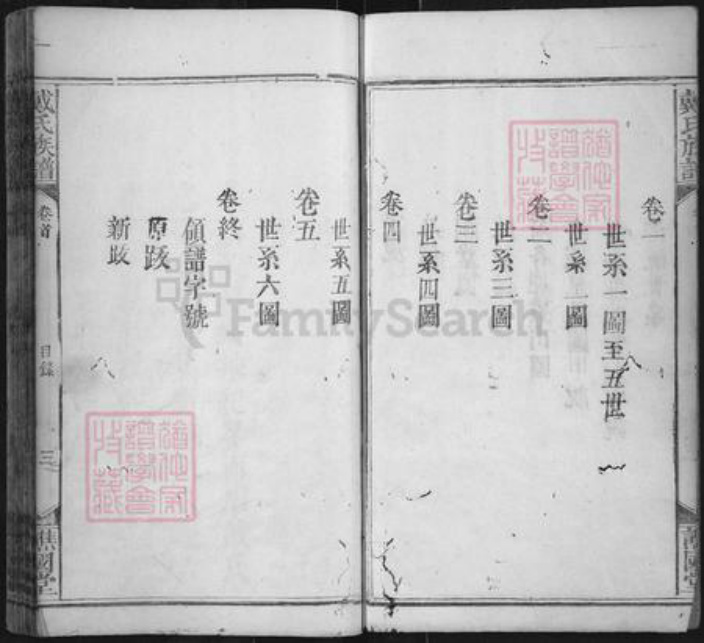 戴氏族譜
卷一
世系一圖至五世
世系二圖
卷二
世系三圖
卷三
世系四圖
卷四
世系五圖
卷五
世系六圖
卷終
領譜字號
原跋
新跋
戴氏族譜
卷首
目錄
三
譙國堂
譙國堂
FamilySearch